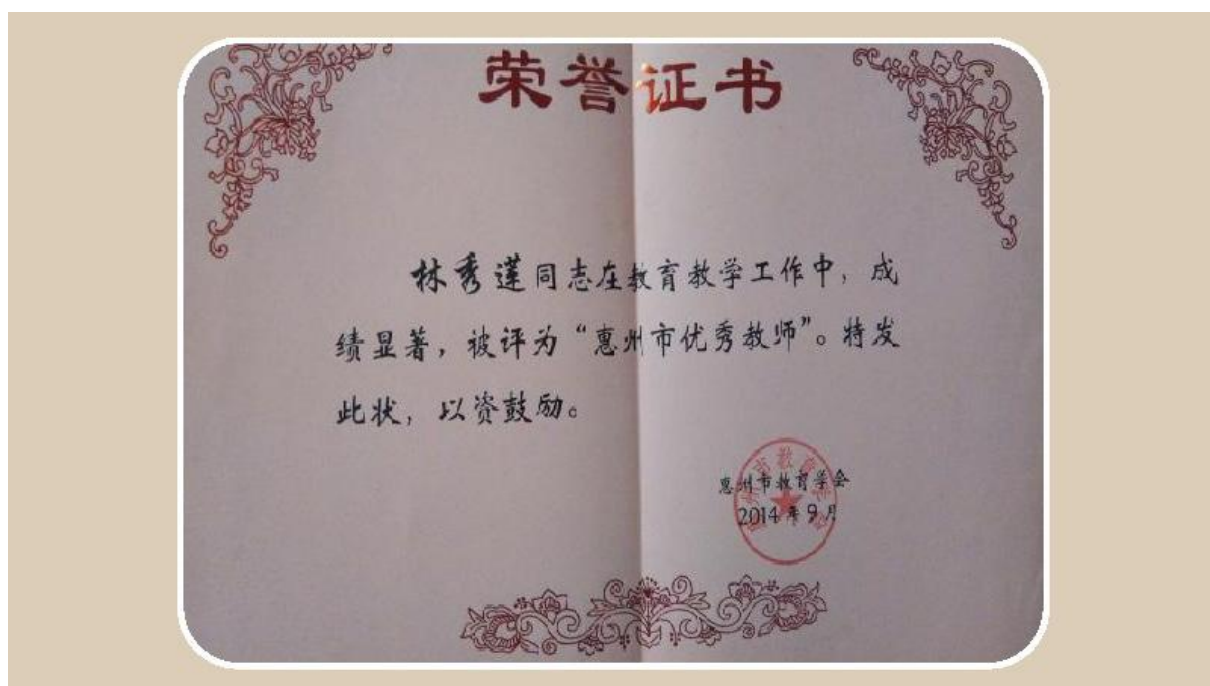 荣誉证书
林秀莲同志在教育教学工作中，成
绩显著，被评为“惠州市优秀教师”。特发
此状，以资鼓励。
惠州市教育学会
2014年9月